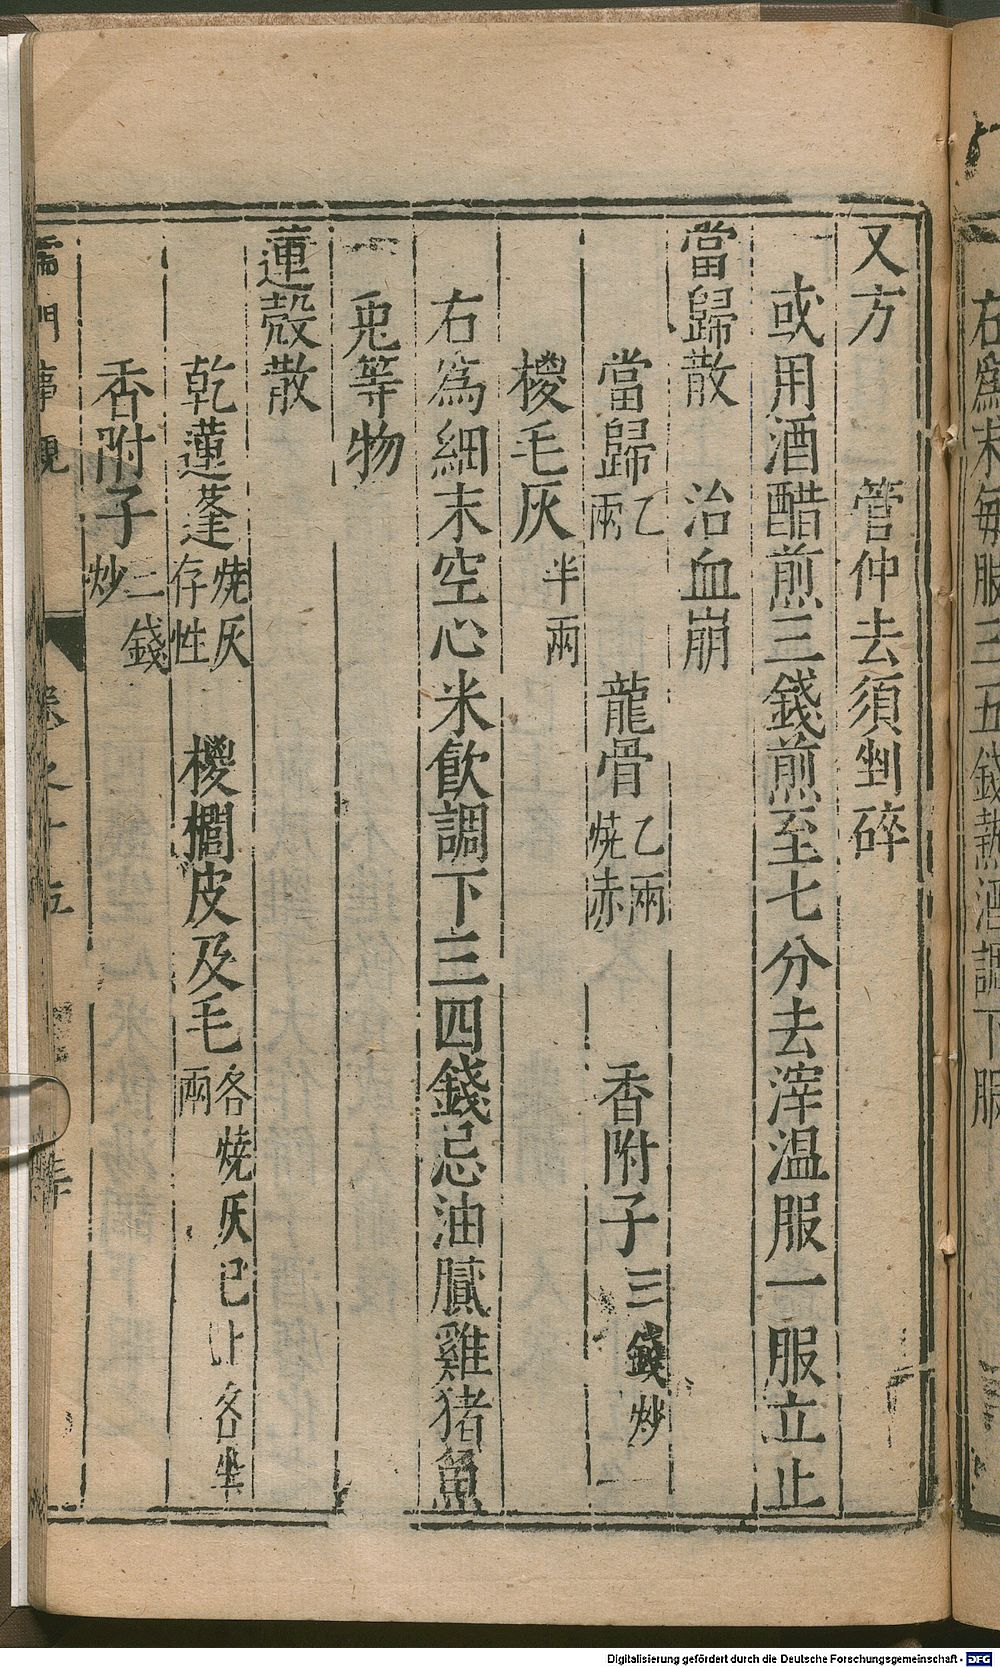 右爲末每服三五錢熱酒調下服
又方
管仲去須剉碎
或用酒醋煎三錢煎至七分去滓温服一服立止
當歸散　治血崩
當歸乙兩　龍骨乙兩燒赤　香附子三錢炒
椶毛灰半兩
右爲細末空心米飲調下三四錢忌油膩雞猪魚
兎等物
蓮殼散
乾蓮蓬燒灰存性　椶櫚皮及毛各燒灰已上各半兩
香附子二錢炒
儒門事親　卷之十五
Digitalisierung gefördert durch die Deutsche Forschungsgemeinschaft - DFG